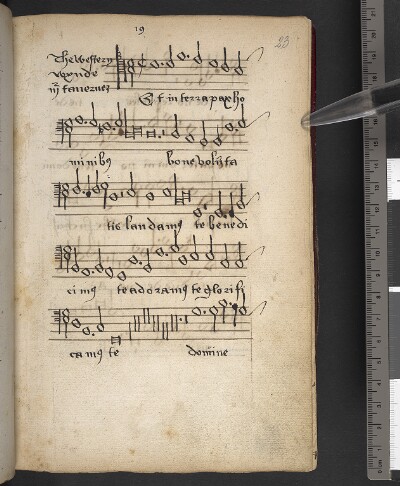 19
23
The western
wynde
iij taverner
Et in terra pax ho
mi nibus bone volūta
tis laudamus te benedi
cimus te adoramus te glorifi
camus te domine